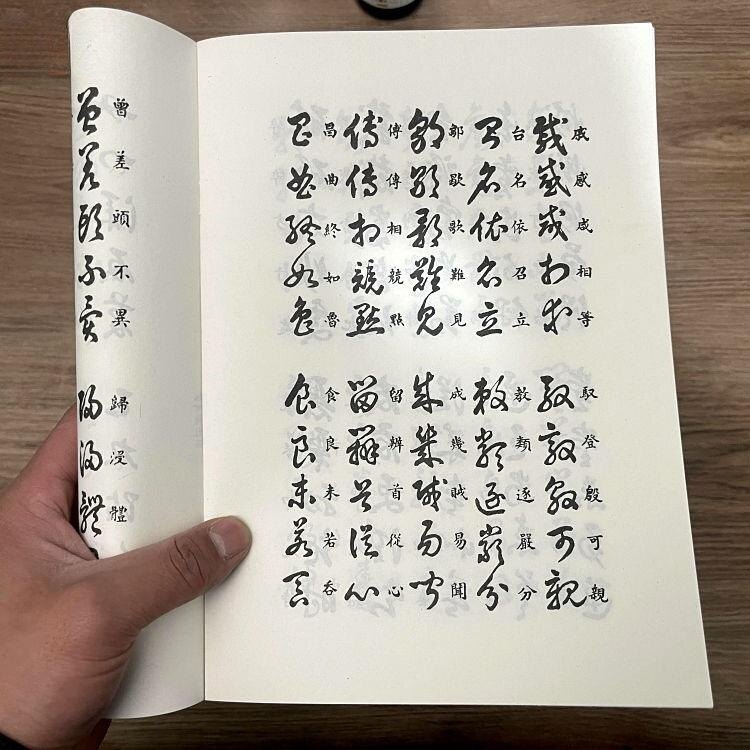 戚感咸相等
馭登殷可親
台名依召立
教類逐嚴分
鄔歇歌難見
成幾賊易聞
傅傳相競點
留辨首從心
昌曲終如魯
食良未若吞
曾差頭不異
歸浸體